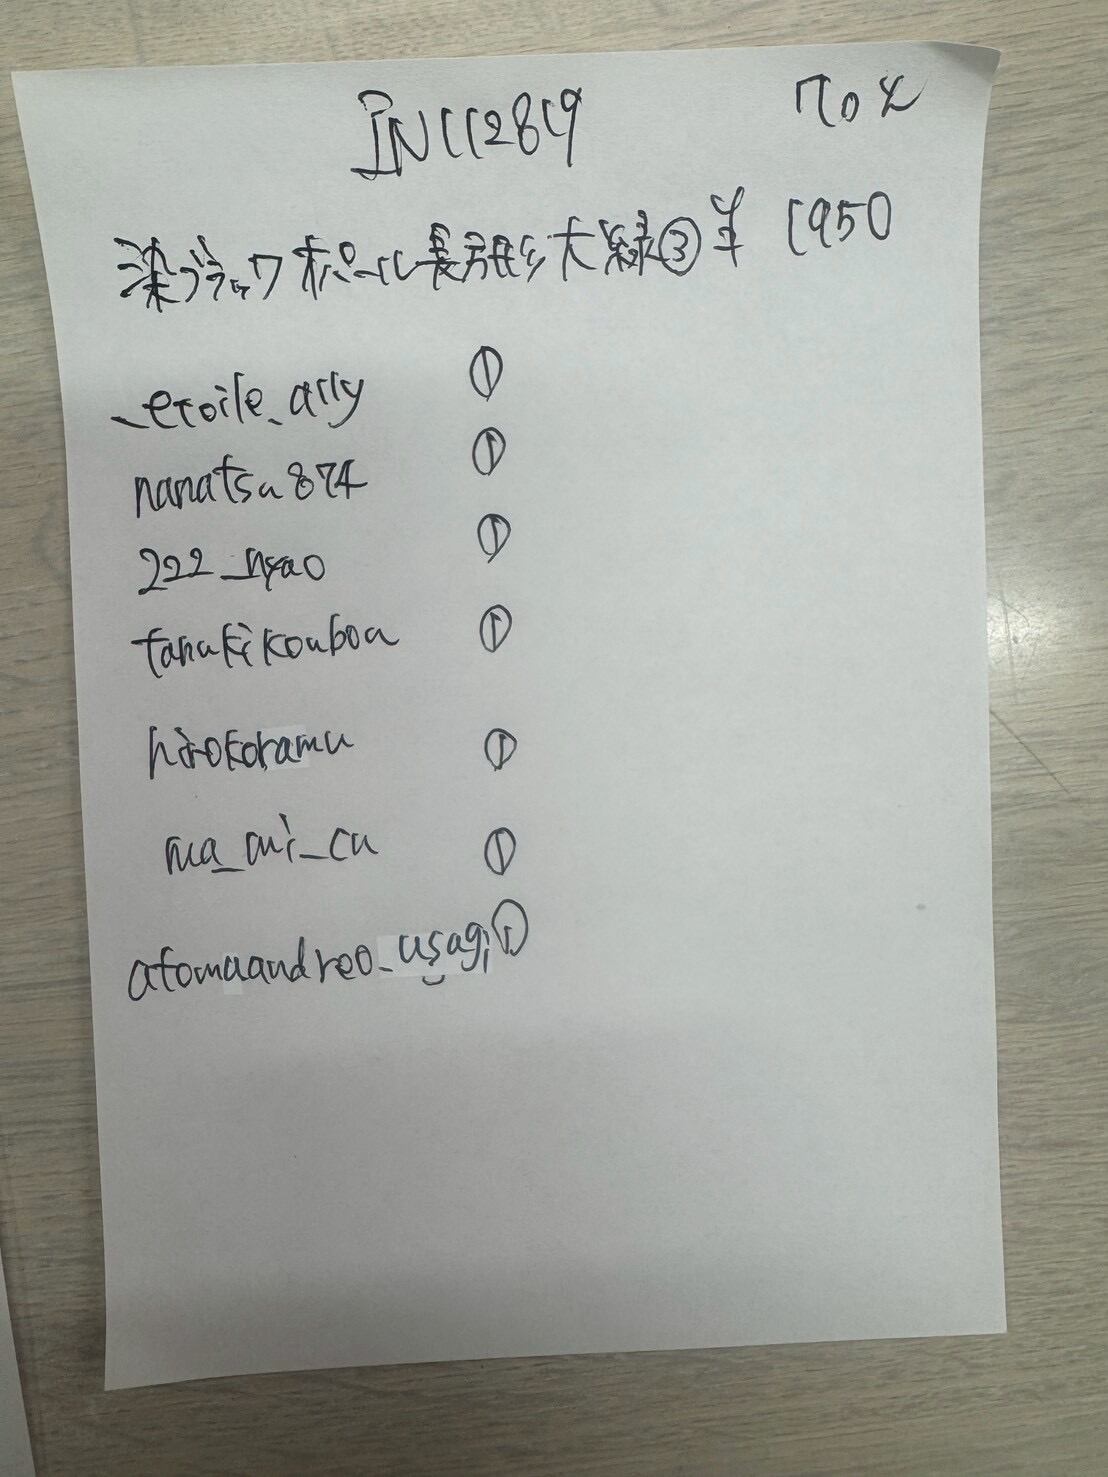 IN112819 70%
染ブラックオパール長方形大緑③¥ 1950
_etoile_ally ①
nanatsu874 ①
222_nyao ①
tanukikouboa ①
hirokoramu ①
ma_mi_cu ①
atomaandreo_usagi ①